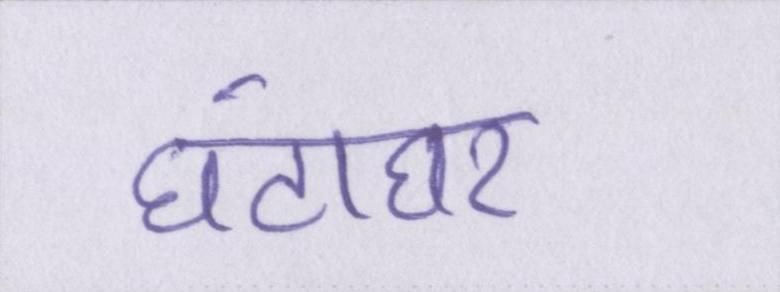 घंटाघर